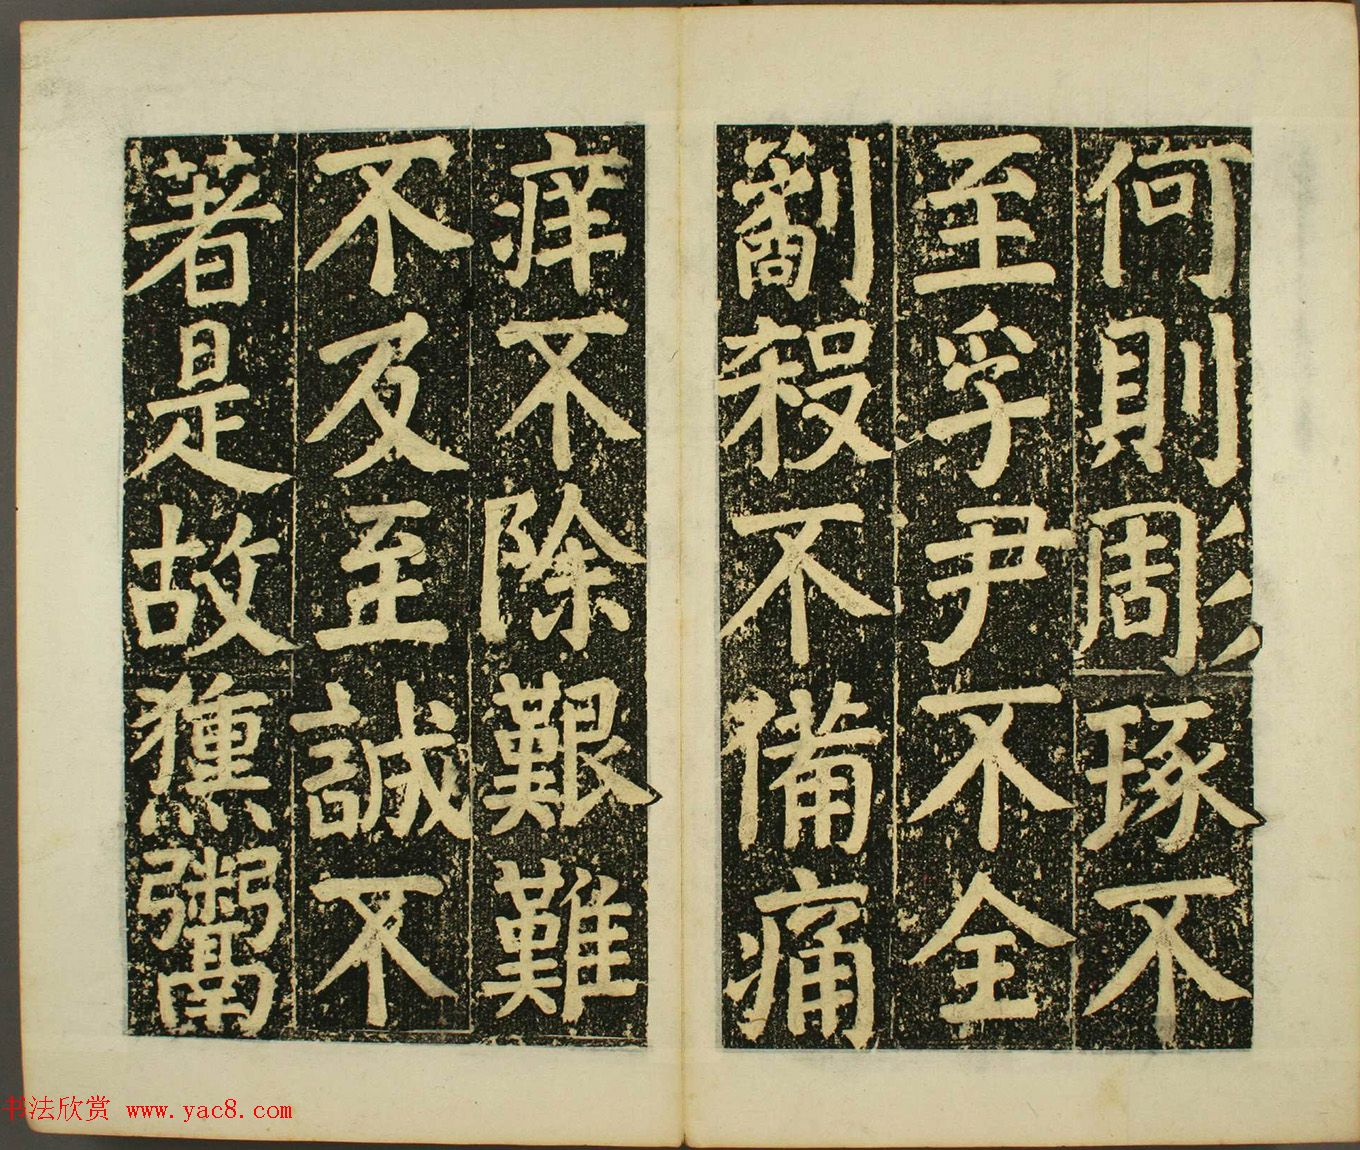 何則彫琢不
至孚尹不全
劄殺不備痛
痒不除艱難
不及至誠不
著是故獯鬻
书法欣赏 www.yac8.com